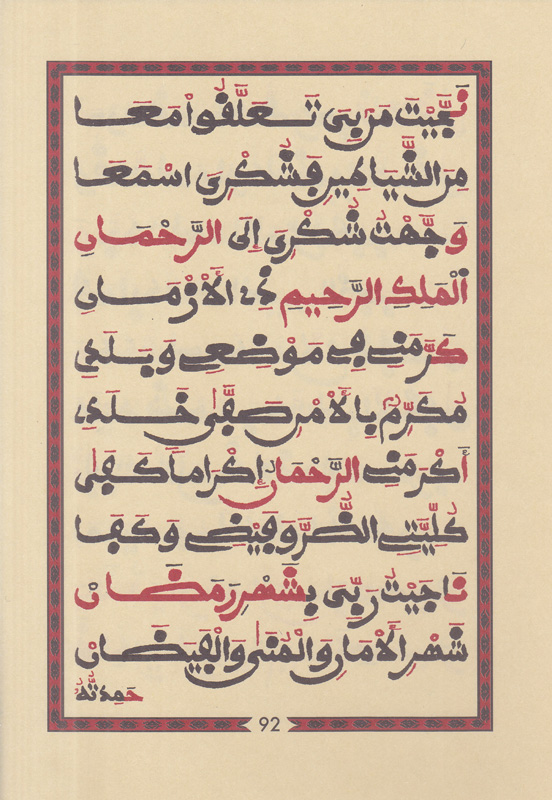 نَجَّيْتَ مَن بِيَ تَعَلَّقُوا مَعَا
مِنَ الشَّيَاطِينِ فَشُكْرِيَ اسْمَعَا
وَجَّهْتُ شُكْرِيَ إِلَى الرَّحْمَانِ
الْمَلِكِ الرَّحِيمِ ذِي الْأَزْمَانِ
كَرَّمَنِي فِي مَوْضِعِي وَبَلَدِي
مُكَرِّمٌ بِالْأَمْنِ صَفَّى خَلَدِي
أَكْرَمَنِي الرَّحْمَانُ إِكْرَامًا كَفَى
كُلِّيَّتِي الضُّرَّ وَفَيْضِي وَكَفَا
نَاجَيْتُ رَبِّيَ بِشَهْرِ رَمَضَانْ
شَهْرِ الْأَمَانِ وَالْمُنَى وَالْفَيَضَانْ
حَمِدتُّهُ
92